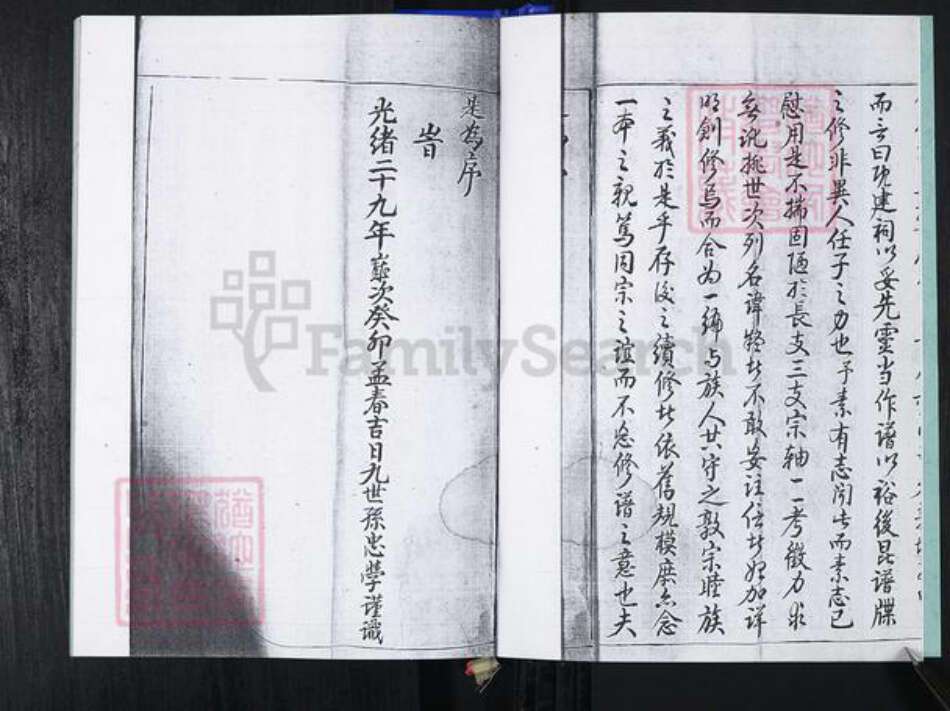 而言曰既建祠以妥先靈当作譜以裕後昆譜牒
之修非異人任子之力也予素有志聞此而素志已
慰用是不揣固陋於長支三支宗軸一一考徵力求
世次列名諱 不敢妄註 加详
明創修焉而合为一编与族人共守之敦宗睦族
之義於是乎存後之續修 依舊規模庶念
一本之親篤同宗之誼而不忽修譜之意也夫
是為序
旹
光緒二十九年嵗次癸卯孟春吉日九世孫忠學謹識
FamilySearch